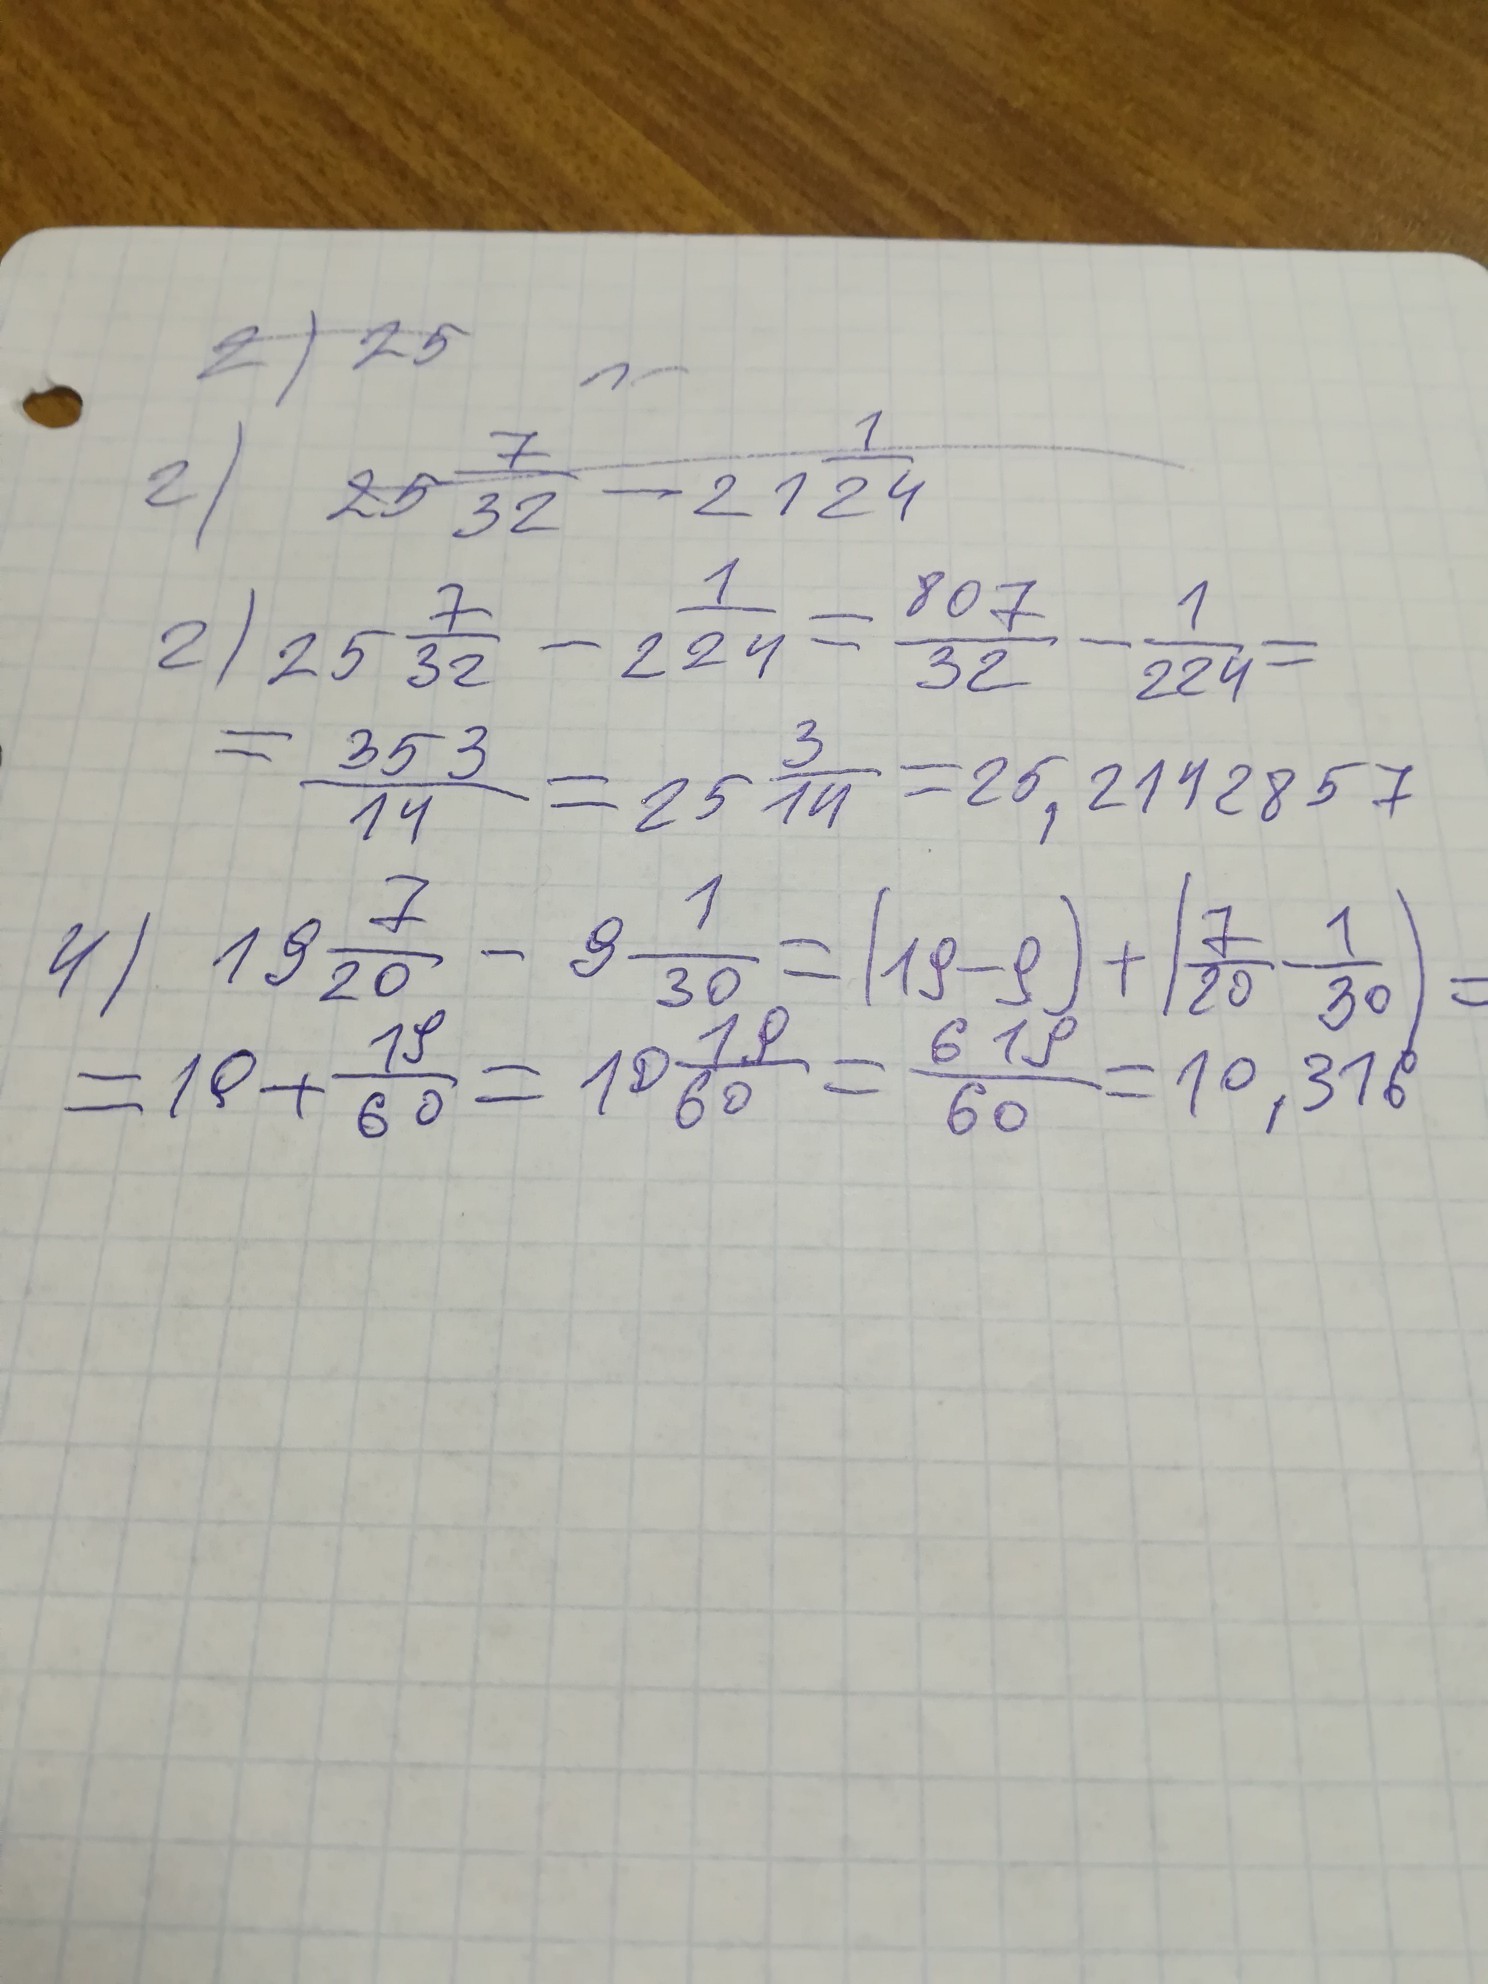 2) 25
2) 25 7/32 - 21 1/24
2) 25 7/32 - 2 1/224 = 807/32 - 1/224 =
= 353/14 = 25 3/14 = 25,2142857
4) 19 7/20 - 9 1/30 = (19-9) + (7/20 - 1/30) =
= 10 + 19/60 = 10 19/60 = 619/60 = 10,316